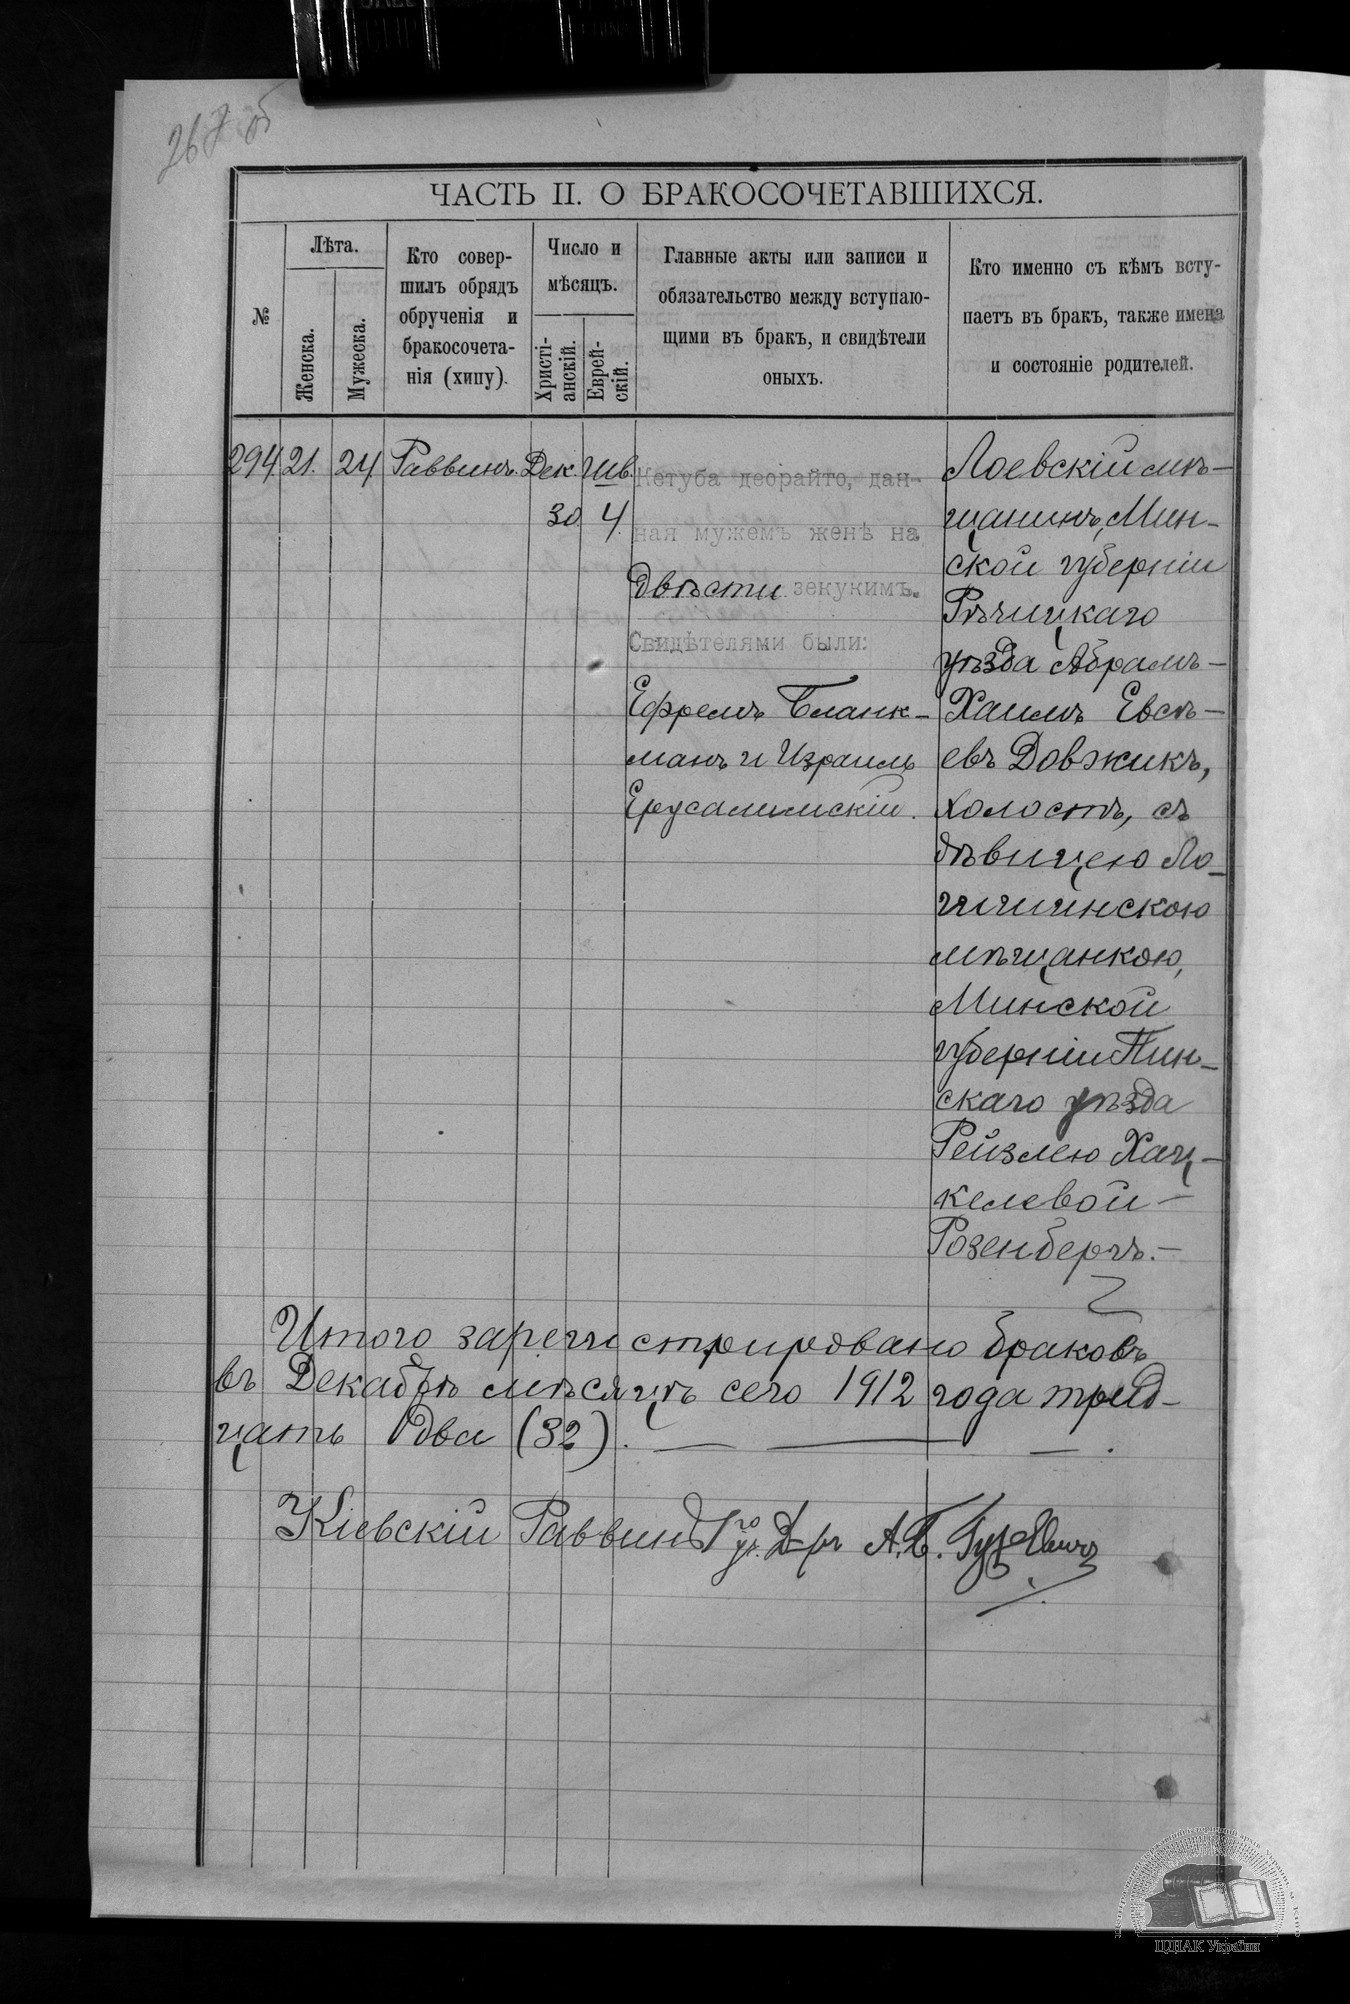 267 об
ЧАСТЬ II. О БРАКОСОЧЕТАВШИХСЯ.
№
Лѣта.
Женска.
Мужеска.
Кто совер-
шилъ обрядъ
обрученія и
бракосочета-
нія (хипу).
Число и
мѣсяцъ.
Христі-
анскій.
Еврей-
скій.
Главные акты или записи и
обязательство между вступаю-
щими въ бракъ, и свидѣтели
оныхъ.
Кто именно съ кѣмъ всту-
паетъ въ бракъ, также имена
и состояніе родителей.
294
21.
24
Раввинъ.
Дек.
30
Шв.
4.
Кетуба деорайто, дан-
ная мужемъ женѣ на
двѣсти зекукимъ.
Свидѣтелями были:
Ефремъ Бланк-
манъ и Израиль
Ерусалимскій.
Лоевскій мѣ-
щанинъ, Мин-
ской губерніи
Рѣчицкаго
уѣзда Абрамъ-
Хаимъ Евсѣ-
евъ Довжикъ,
холостъ, съ
дѣвицею Ло-
гишинскою
мѣщанкою,
Минской
губерніи Пин-
скаго уѣзда
Рейзлею Хац-
келевой-
Розенбергъ.-
Итого зарегистрировано браковъ
въ Декабрѣ мѣсяцѣ сего 1912 года трид-
цать два (32). — — — .
Кіевскій Раввинъ 1го уч. Д-ръ А. Б. Гуревичъ
ЦДІАК України